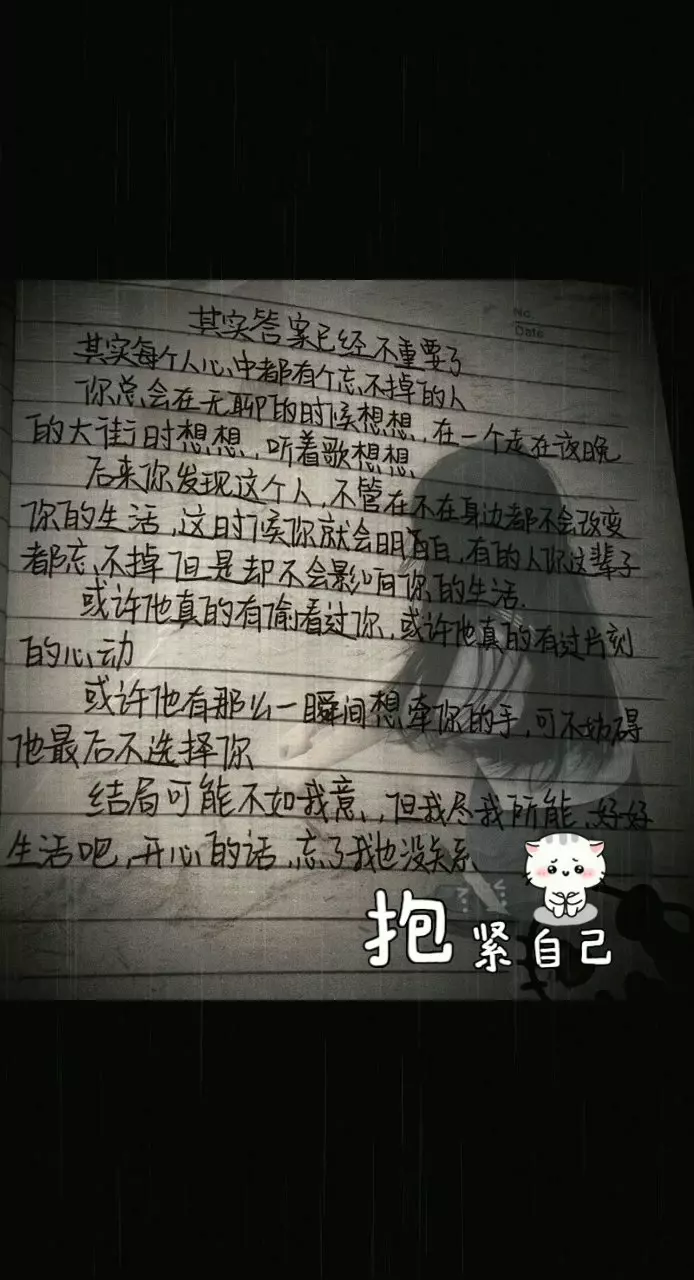 No.
Date
其实答案已经不重要了
其实每个人心中都有个忘不掉的人
你总会在无聊的时候想想,在一个走在夜晚
的大街时想想,听着歌想想、
后来你发现这个人,不管在不在身边都不会改变
你的生活,这时候你就会明白,有的人你这辈子
都忘不掉但是却不会影响你的生活.
或许他真的有偷看过你,或许他真的有过片刻
的心动
或许他有那么一瞬间想牵你的手,可不妨碍
他最后不选择你
结局可能不如我意,,但我尽我所能,好好
生活吧,开心的话,忘了我也没关系
抱紧自己